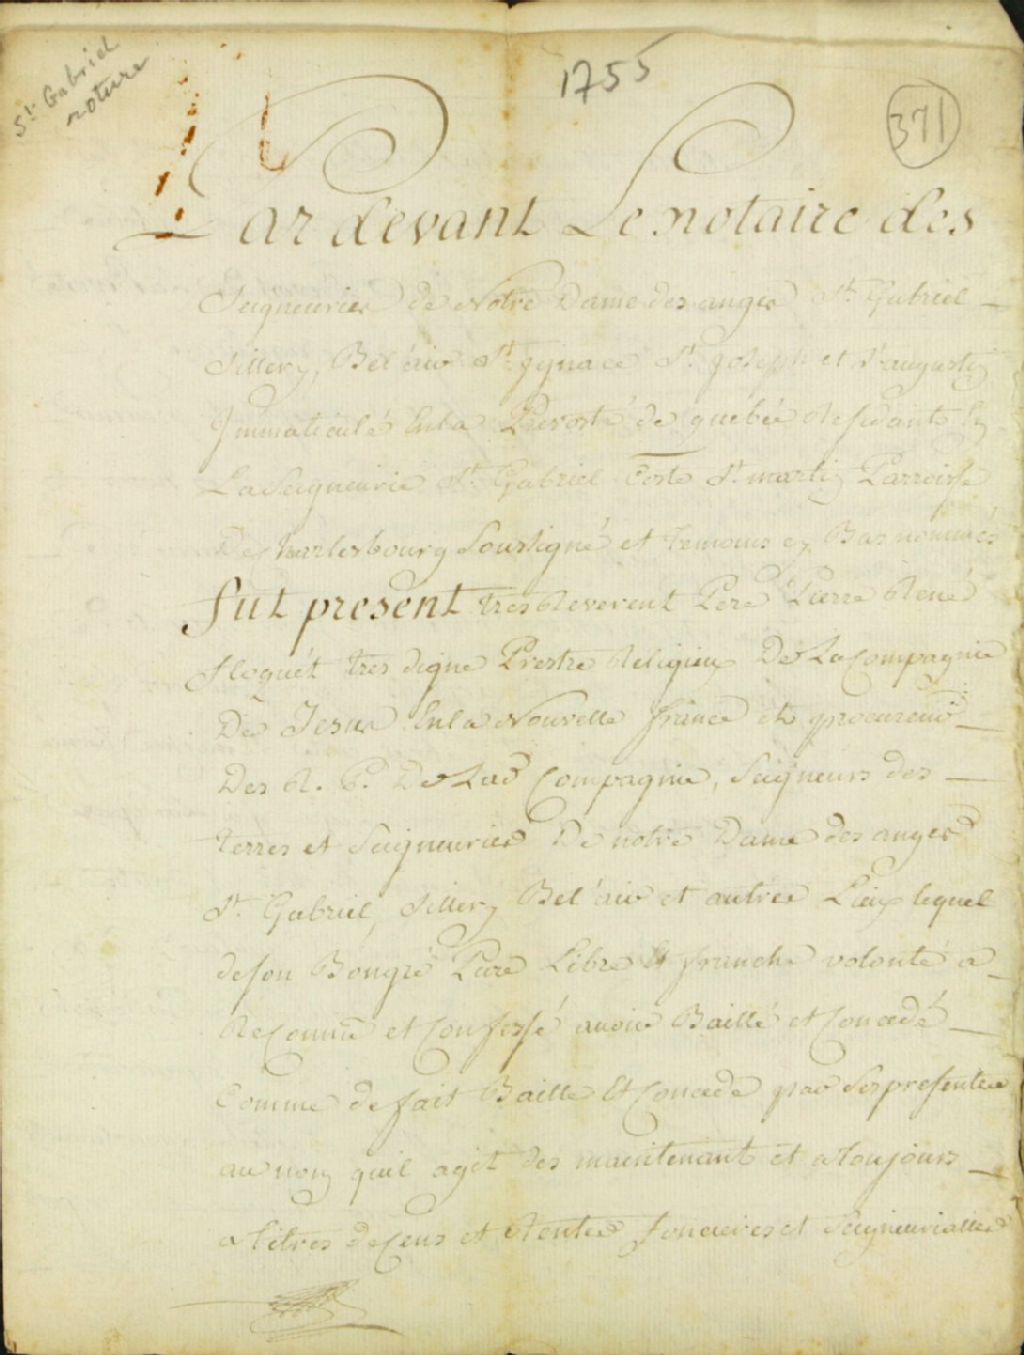 St. Gabriel
roture
1755
371
Par devant Le notaire des
Seigneuries de Notre Dame des anges St. Gabriel
Sillery, Bel'air St. Jgnace St. Joseph et St augustin
Jmmatriculé Enla Prevosté de quebéc Residant En
La Seigneurie St. Gabriel Coste St. martin Parroisse
De Charlesbourg Soussigné et temoins cy Bas nommés
fut present tres Reverent Pere Pierre René
floquét tres digne Prestre Religieux De La Compagnie
De Jesus Enla Nouvelle france et procureur
Des R. P. De Lad Compagnie, Seigneurs des
terres et Seigneuries De notre Dame des anges
St. Gabriel, Sillery Bel'air et autres Lieux lequel
deson Bongré Pure Libre Et franche volonté a
Reconnu et Confessé avoir Baillé et Concedé
Comme defait Baille Et Concede par Ses presentes
au nom quil agit des maintenant et atoujours
atitres de Cens et Rentes foncieres et Seigneurialles